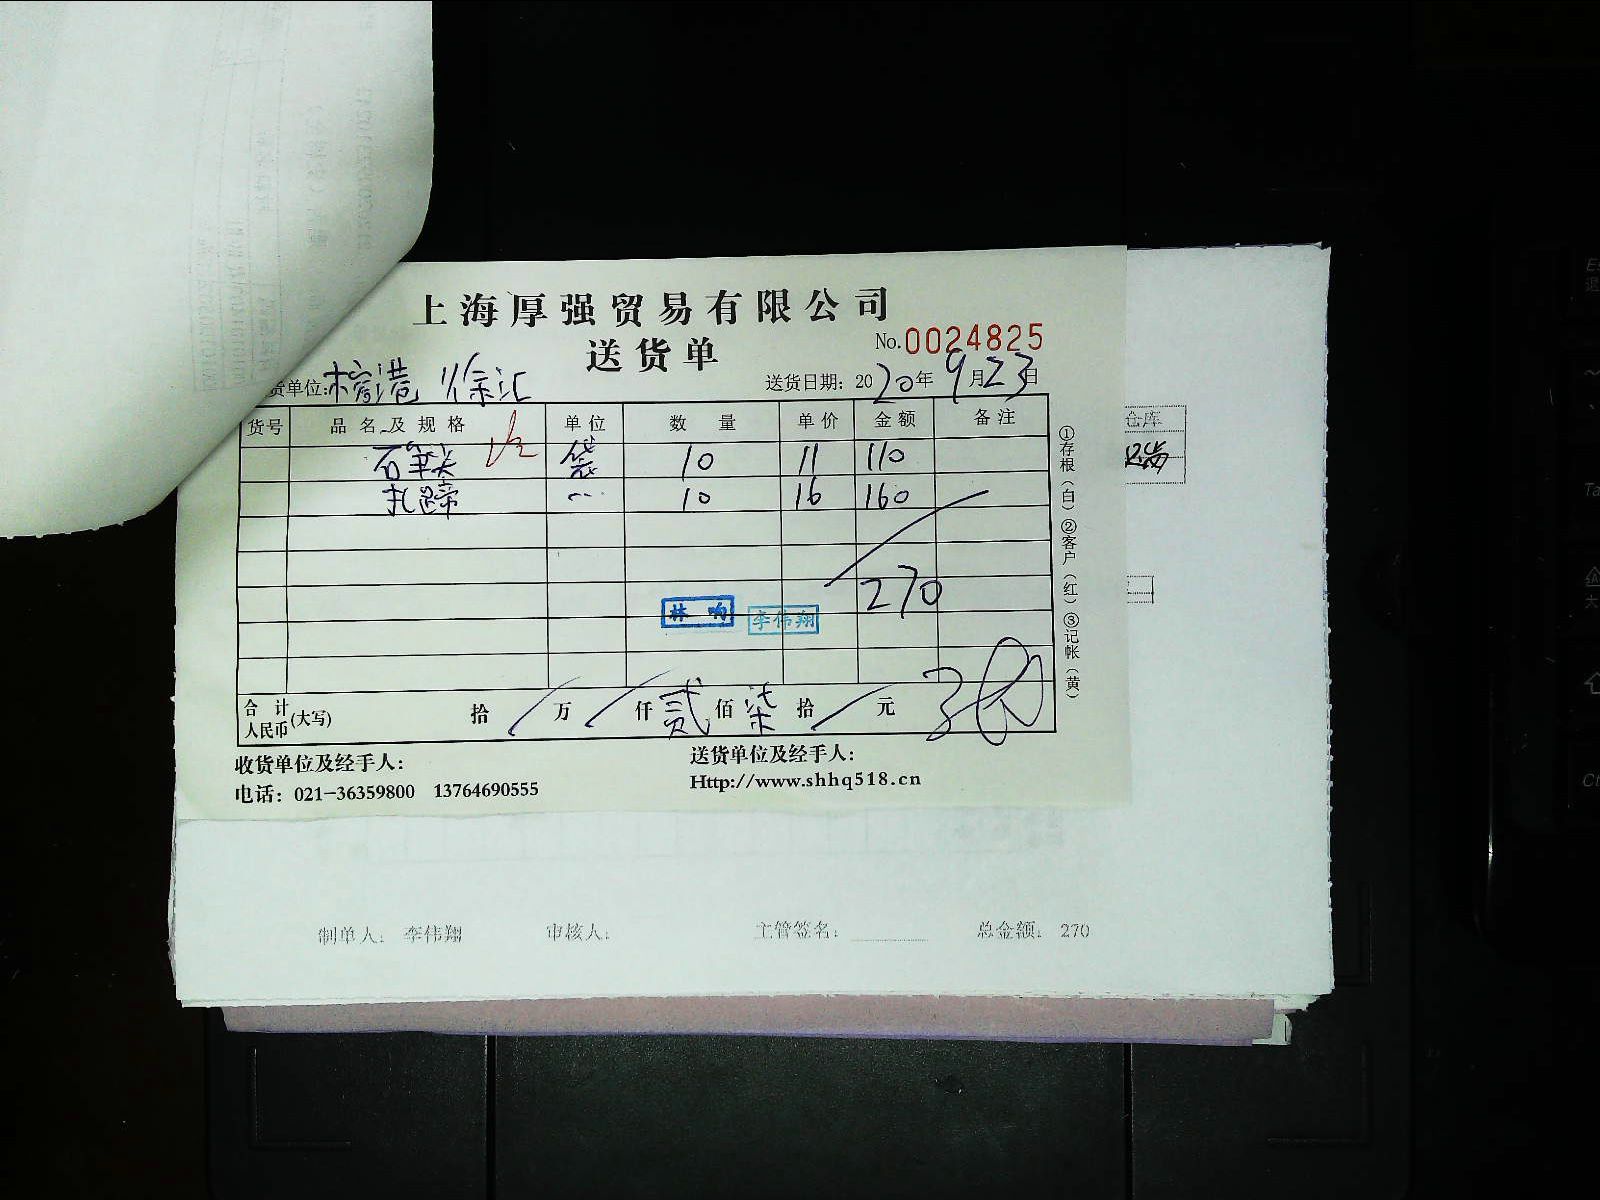 上海厚强贸易有限公司
No.0024825
送货单
货单位: 徐汇 送货日期: 2020年9月23日
货号 品名及规格 单位 数量 单价 金额 备注
袋 10 11 110
扎蹄 10 16 160
270
林 响 李伟翔
合计人民币(大写) 拾 万 仟 贰 佰 柒 拾 元
收货单位及经手人: 送货单位及经手人:
电话: 021-36359800 13764690555 Http://www.shhq518.cn
①存根(白)②客户(红)③记帐(黄)
仓库
制单人: 李伟翔 审核人: 主管签名: 总金额: 270